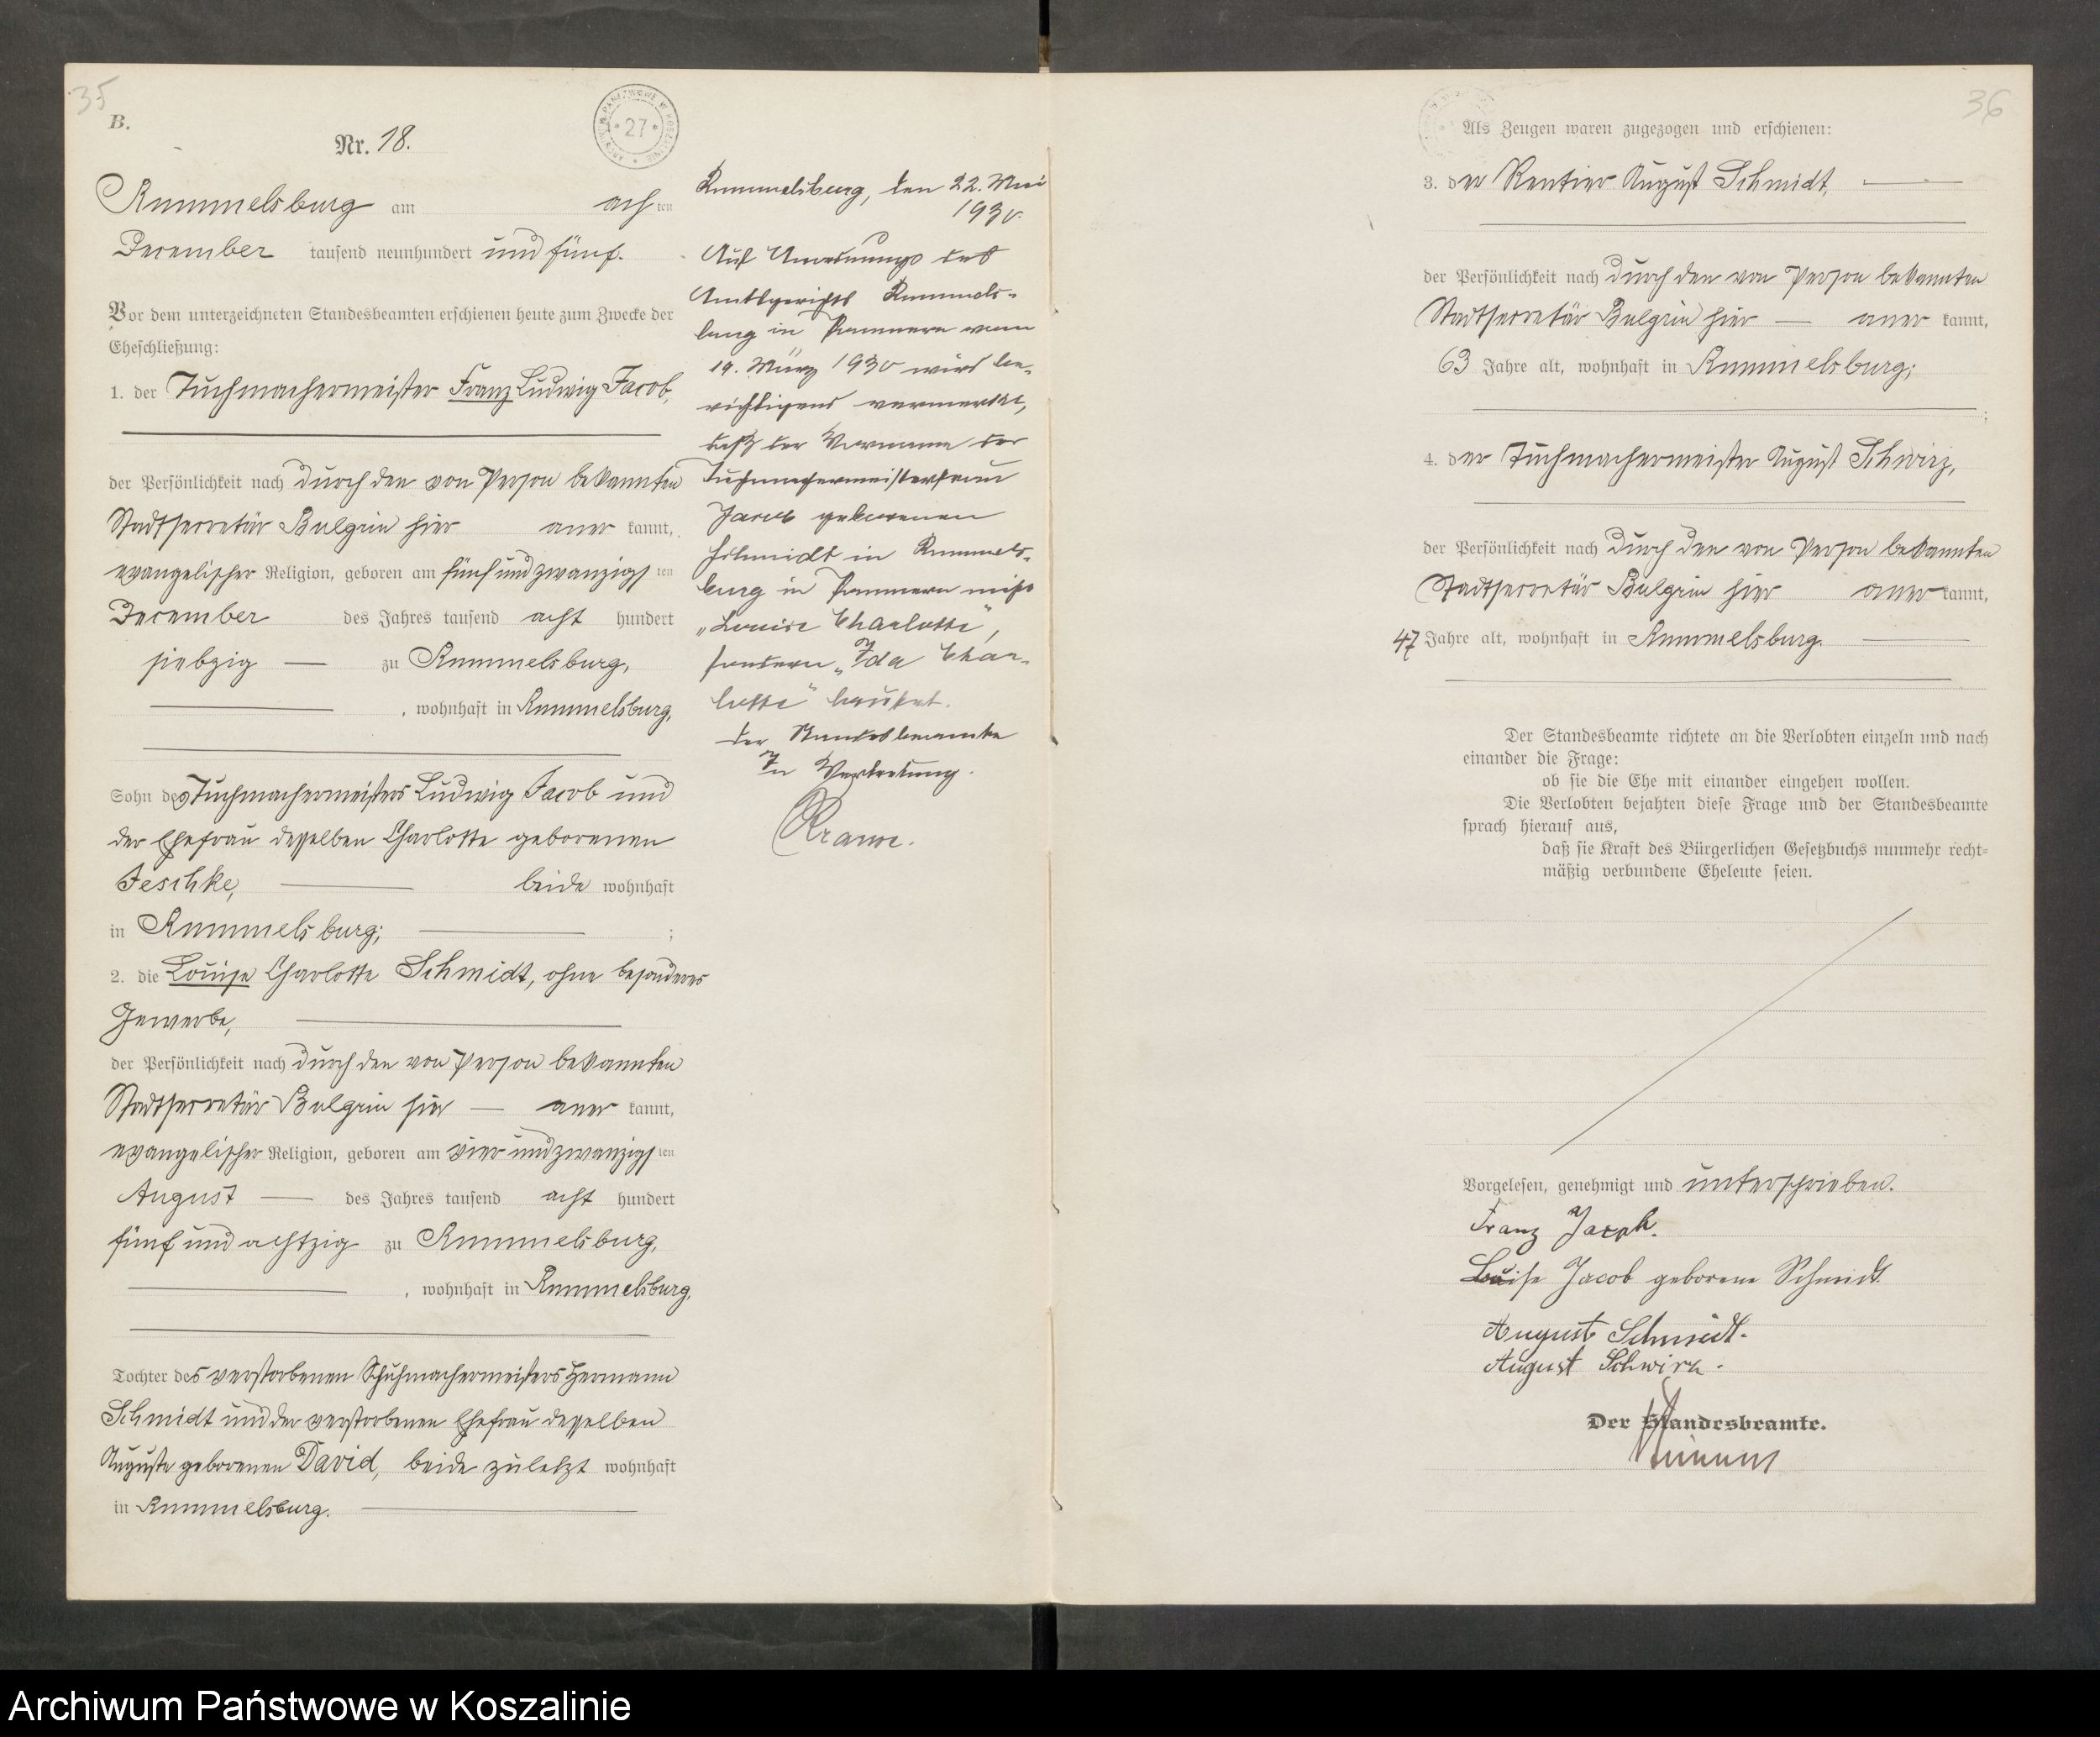 35
B.
Nr. 18.
ARCHIWUM PAŃSTWOWE W KOSZALINIE * 27 *
Rummelsburg am achten
December tausend neunhundert und fünf.
Vor dem unterzeichneten Standesbeamten erschienen heute zum Zwecke der
Eheschließung:
1. der Tuchmachermeister Franz Ludwig Jacob,
der Persönlichkeit nach durch den von Person bekannten
Stadtsecretär Bulgrin hier anerkannt,
evangelischer Religion, geboren am fünfundzwanzigsten
December des Jahres tausend achthundert
siebzig — zu Rummelsburg,
, wohnhaft in Rummelsburg,
Sohn des Tuchmachermeisters Ludwig Jacob und
der Ehefrau desselben Charlotte geborenen
Jeschke, beide wohnhaft
in Rummelsburg; ;
2. die Louise Charlotte Schmidt, ohne besonderes
Gewerbe,
der Persönlichkeit nach durch den von Person bekannten
Stadtsecretär Bulgrin hier — anerkannt,
evangelischer Religion, geboren am vierundzwanzigsten
August — des Jahres tausend achthundert
fünfundachtzig zu Rummelsburg,
, wohnhaft in Rummelsburg,
Tochter des verstorbenen Schuhmachermeisters Hermann
Schmidt und der verstorbenen Ehefrau desselben
Auguste geborenen David, beide zuletzt wohnhaft
in Rummelsburg.
Rummelsburg, den 22. Mai
1930.
Auf Anordnung des
Amtsgerichts Rummels-
burg in Pommern vom
19. März 1930 wird be-
richtigend vermerkt,
daß der Vorname der
Tuchmachermeisterfrau
Jacob geborenen
Schmidt in Rummels-
burg in Pommern nicht
„Louise Charlotte",
sondern „Ida Char-
lotte" lautet.
Der Standesbeamte
In Vertretung.
36
Als Zeugen waren zugezogen und erschienen:
3. der Rentier August Schmidt,
der Persönlichkeit nach durch den von Person bekannten
Stadtsecretär Bulgrin hier — anerkannt,
63 Jahre alt, wohnhaft in Rummelsburg;
;
4. der Tuchmachermeister August Schwirz,
der Persönlichkeit nach durch den von Person bekannten
Stadtsecretär Bulgrin hier anerkannt,
47 Jahre alt, wohnhaft in Rummelsburg.
Der Standesbeamte richtete an die Verlobten einzeln und nach
einander die Frage:
ob sie die Ehe mit einander eingehen wollen.
Die Verlobten bejahten diese Frage und der Standesbeamte
sprach hierauf aus,
daß sie kraft des Bürgerlichen Gesetzbuchs nunmehr recht-
mäßig verbundene Eheleute seien.
Vorgelesen, genehmigt und unterschrieben.
Franz Jacob.
Louise Jacob geborene Schmidt
August Schmidt.
August Schwirz.
Der Standesbeamte.
Archiwum Państwowe w Koszalinie